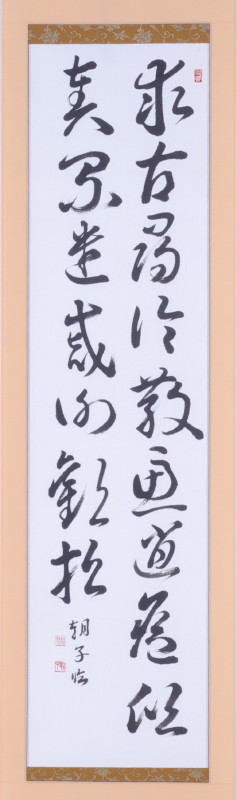 求古尋論散慮逍遙欣
奏累遣慼謝歡招
朝子臨